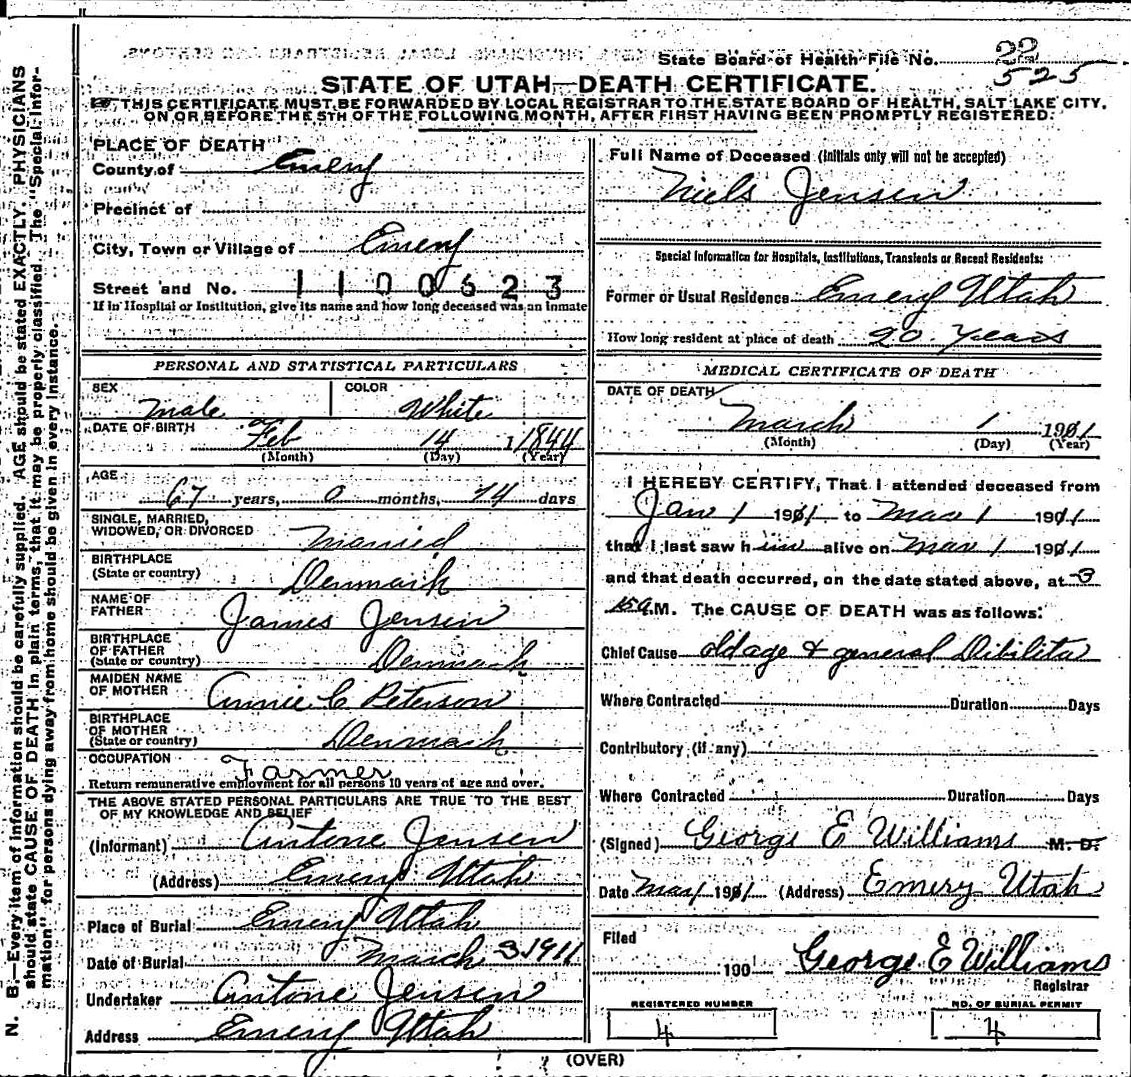 State Board of Health File No. 22
525
STATE OF UTAH—DEATH CERTIFICATE.
THIS CERTIFICATE MUST BE FORWARDED BY LOCAL REGISTRAR TO THE STATE BOARD OF HEALTH, SALT LAKE CITY,
ON OR BEFORE THE 5TH OF THE FOLLOWING MONTH, AFTER FIRST HAVING BEEN PROMPTLY REGISTERED.
N. B.—Every item of information should be carefully supplied. AGE should be stated EXACTLY. PHYSICIANS
should state CAUSE OF DEATH in plain terms, that it may be properly classified. The "Special Infor-
mation" for persons dying away from home should be given in every instance.
PLACE OF DEATH
County of Emery
Precinct of
City, Town or Village of Emery
Street and No. 1100623
If in Hospital or Institution, give its name and how long deceased was an inmate
PERSONAL AND STATISTICAL PARTICULARS
SEX COLOR
Male White
DATE OF BIRTH
Feb 14 1844
(Month) (Day) (Year)
AGE
67 years, 0 months, 14 days
SINGLE, MARRIED,
WIDOWED, OR DIVORCED Married
BIRTHPLACE
(State or country) Denmark
NAME OF
FATHER James Jensen
BIRTHPLACE
OF FATHER
(State or country) Denmark
MAIDEN NAME
OF MOTHER Annie C Peterson
BIRTHPLACE
OF MOTHER
(State or country) Denmark
OCCUPATION
Farmer
Return remunerative employment for all persons 10 years of age and over.
THE ABOVE STATED PERSONAL PARTICULARS ARE TRUE TO THE BEST
OF MY KNOWLEDGE AND BELIEF
(Informant) Antone Jensen
(Address) Emery Utah
Place of Burial Emery Utah
Date of Burial March 3 1911
Undertaker Antone Jensen
Address Emery Utah
Full Name of Deceased (Initials only will not be accepted)
Niels Jensen
Special Information for Hospitals, Institutions, Transients or Recent Residents:
Former or Usual Residence Emery Utah
How long resident at place of death 20 Years
MEDICAL CERTIFICATE OF DEATH
DATE OF DEATH
March 1 1911
(Month) (Day) (Year)
I HEREBY CERTIFY, That I attended deceased from
Jan 1 1911 to Mar 1 1911
that I last saw him alive on Mar 1 1911
and that death occurred, on the date stated above, at 3
15 A.M. The CAUSE OF DEATH was as follows:
Chief Cause old age & general Dibilita
Where Contracted Duration Days
Contributory (if any)
Where Contracted Duration Days
(Signed) George E Williams M. D.
Date Mar 1 1911 (Address) Emery Utah
Filed
190 George E Williams
Registrar
REGISTERED NUMBER NO. OF BURIAL PERMIT
4 4
(OVER)